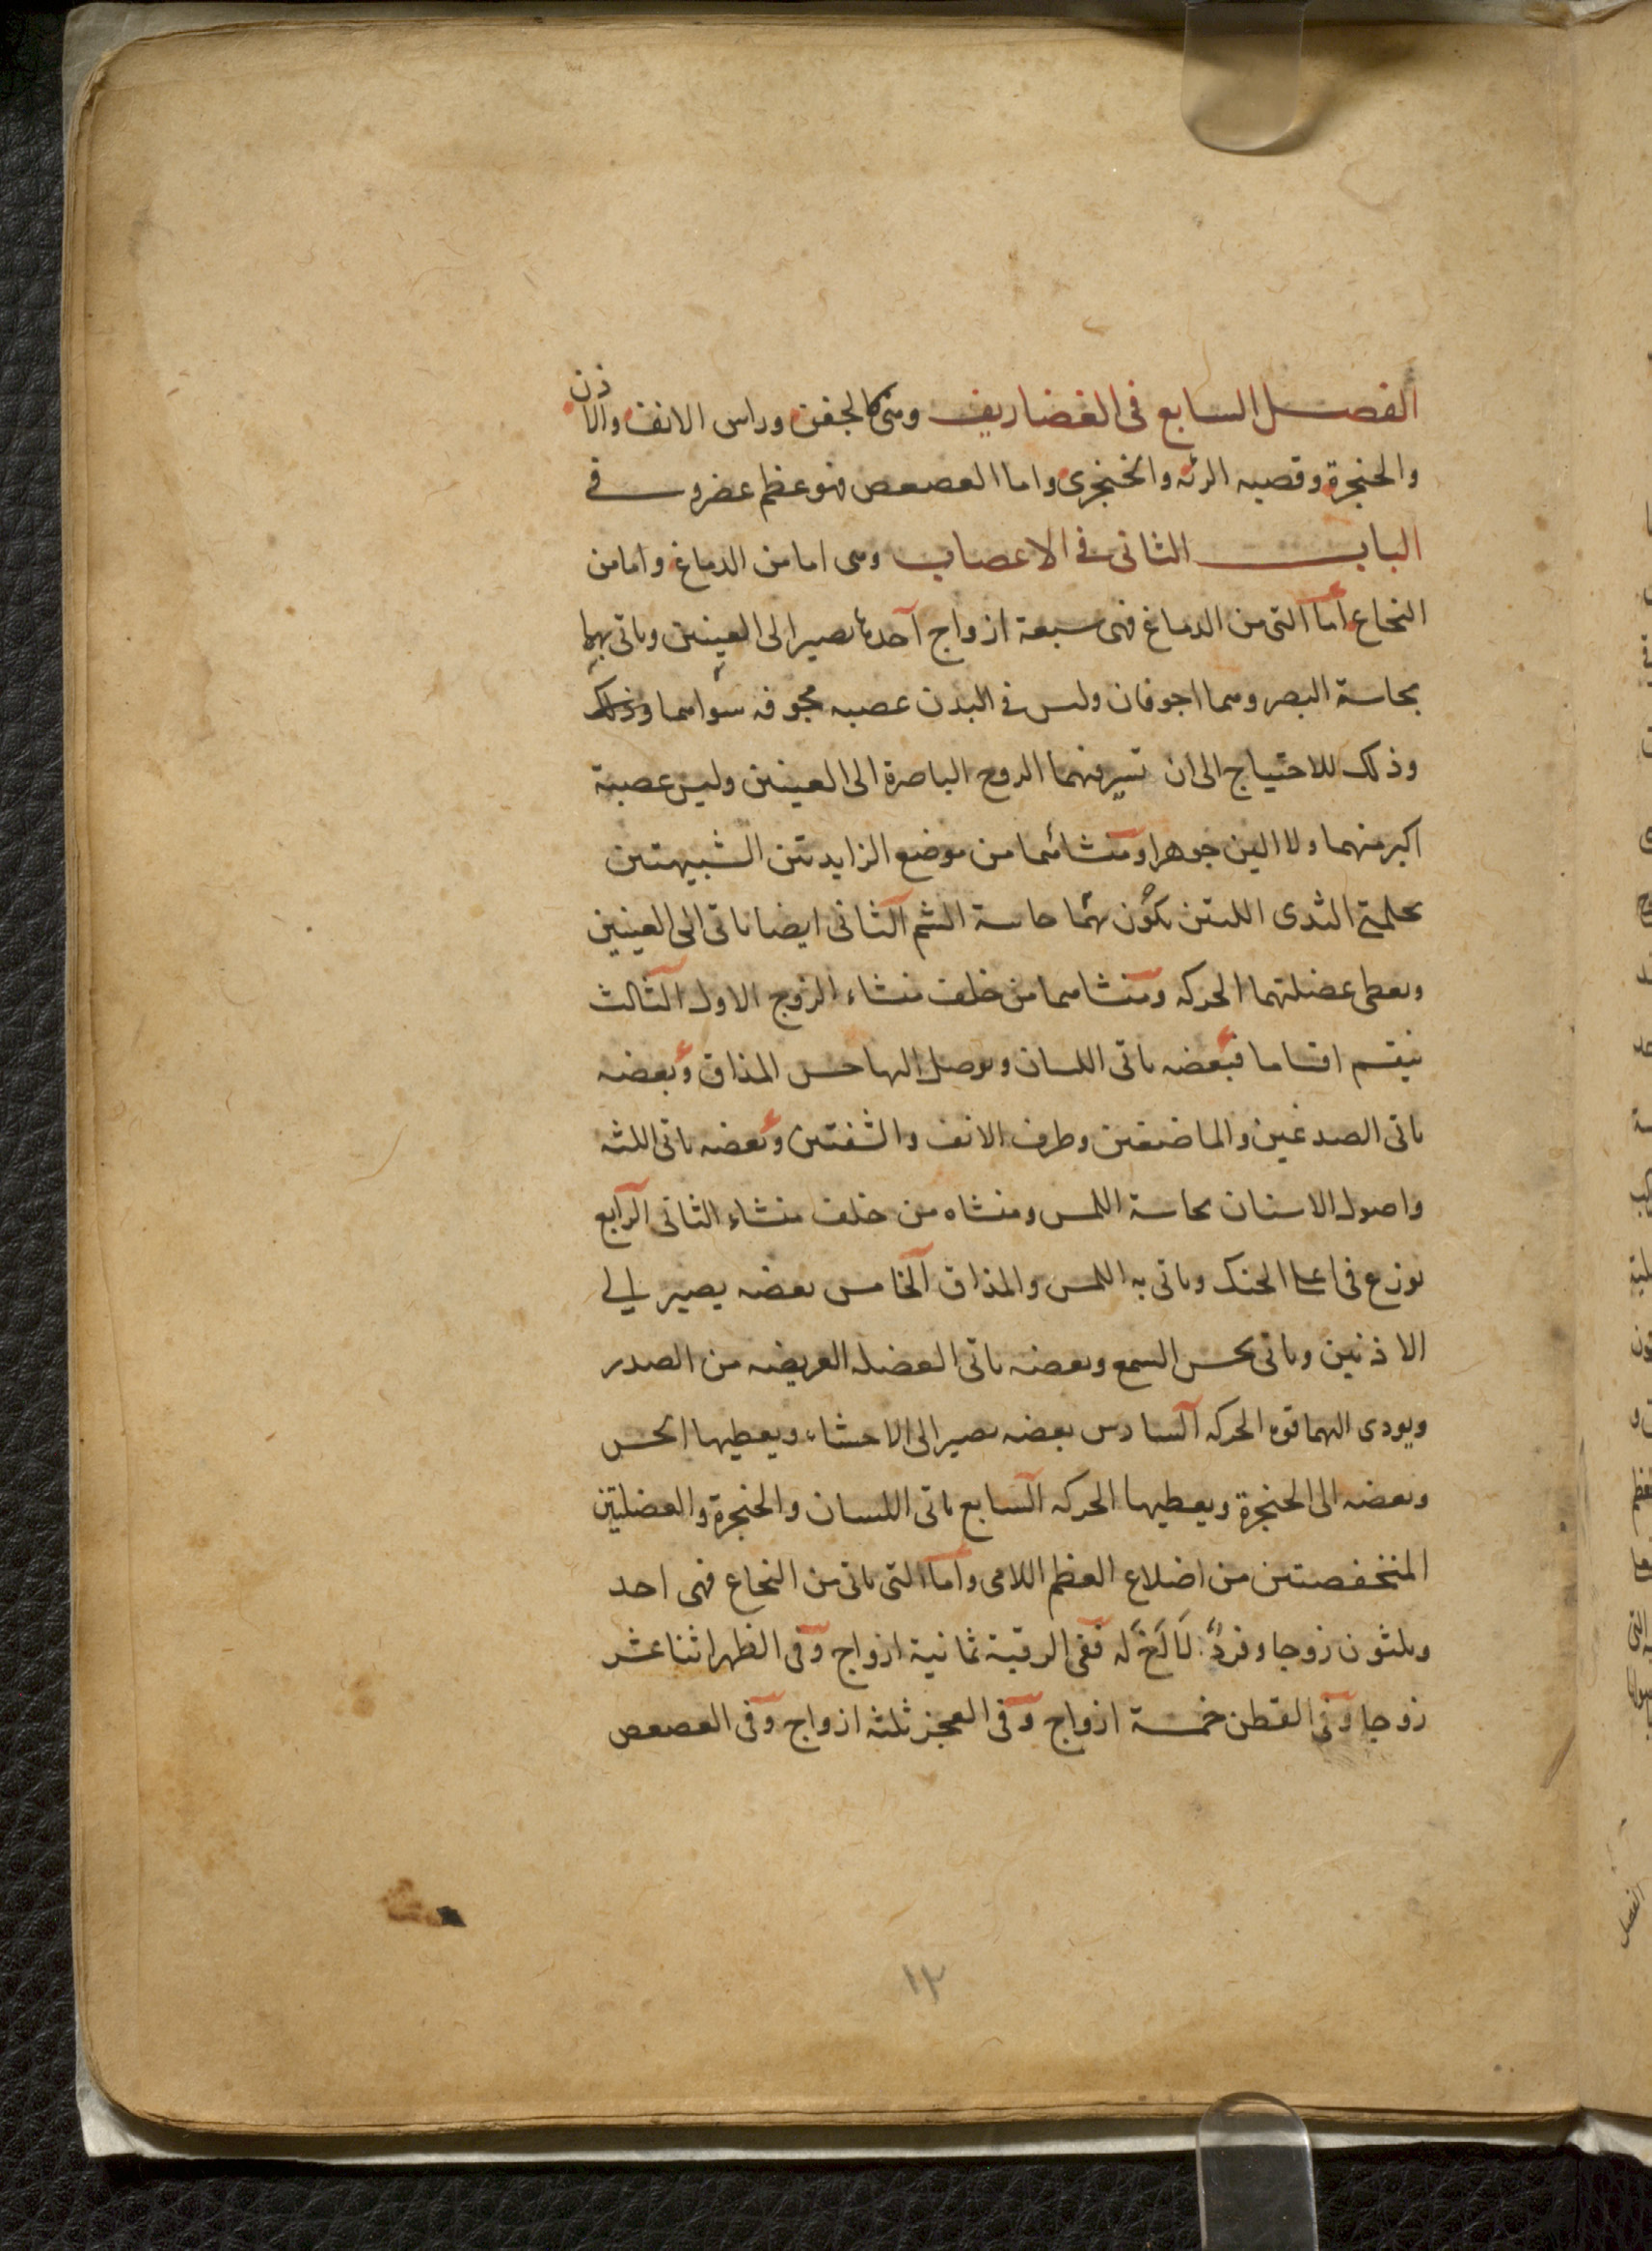 الفصل السابع فى الغضاريف وهى كالجفن وراس الانف والاذن
والحنجرة وقصبه الرئه والخنجرى واما العصعص فهو عظم غضروفى
الباب الثانى فى الاعصاب وهى اما من الدماغ واما من
النخاع اما التى من الدماغ فهى سبعة ازواج احدها يصير الى العينين وياتى بهما
بحاسة البصر وهما اجوفان وليس فى البدن عصبه مجوفه سواهما وذلك
وذلك للاحتياج الى ان تسير فيهما الروح الباصرة الى العينين وليس عصبة
اكبر منهما ولا الين جوهرا ومنشائهما من موضع الزايدتين الشبيهتين
بحلمتى الثدى اللتين تكون بهما حاسة الشم الثانى ايضا ياتى الى العينين
ويعطى عضلتهما الحركه ومنشاهما من خلف منشاء الزوج الاول الثالث
ينقسم اقساما فبعضه ياتى اللسان ويوصل اليها حس المذاق وبعضه
ياتى الصدغين والماضغين وطرف الانف والشفتين وبعضه ياتى اللثه
واصول الاسنان بحاسة اللمس ومنشاه من خلف منشاء الثانى الرابع
يوزع فى اعلا الحنك وياتى به اللمس والمذاق الخامس بعضه يصير الى
الاذنين وياتى بحس السمع وبعضه ياتى العضله العريضه من الصدر
ويودى اليهما قوه الحركه السادس بعضه يصير الى الاحشاء ويعطيها الحس
وبعضه الى الحنجرة ويعطيها الحركه السابع ياتى اللسان والحنجرة والعضلتين
المنخفضتين من اضلاع العظم اللامى واما التى ياتى من النخاع فهى احد
وثلثون زوجا وفرد لا اخ له ففى الرقبة ثمانية ازواج وفى الظهر اثنا عشر
زوجا وفى القطن خمسة ازواج وفى العجز ثلثه ازواج وفى العصعص
١٣